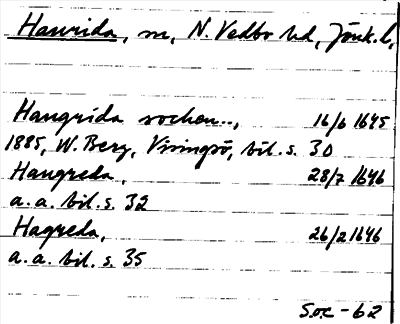 Haurida, sn, N. Vedbo hd, Jönk. l.
Haugrida sochen.., 16/6 1645
1885, W. Berg, Visingsö, bil. s. 30
Haugreda, 28/7 1646
a.a. bil. s. 32
Hagreda, 26/2 1646
a.a. bil. s. 35
Soc - 62